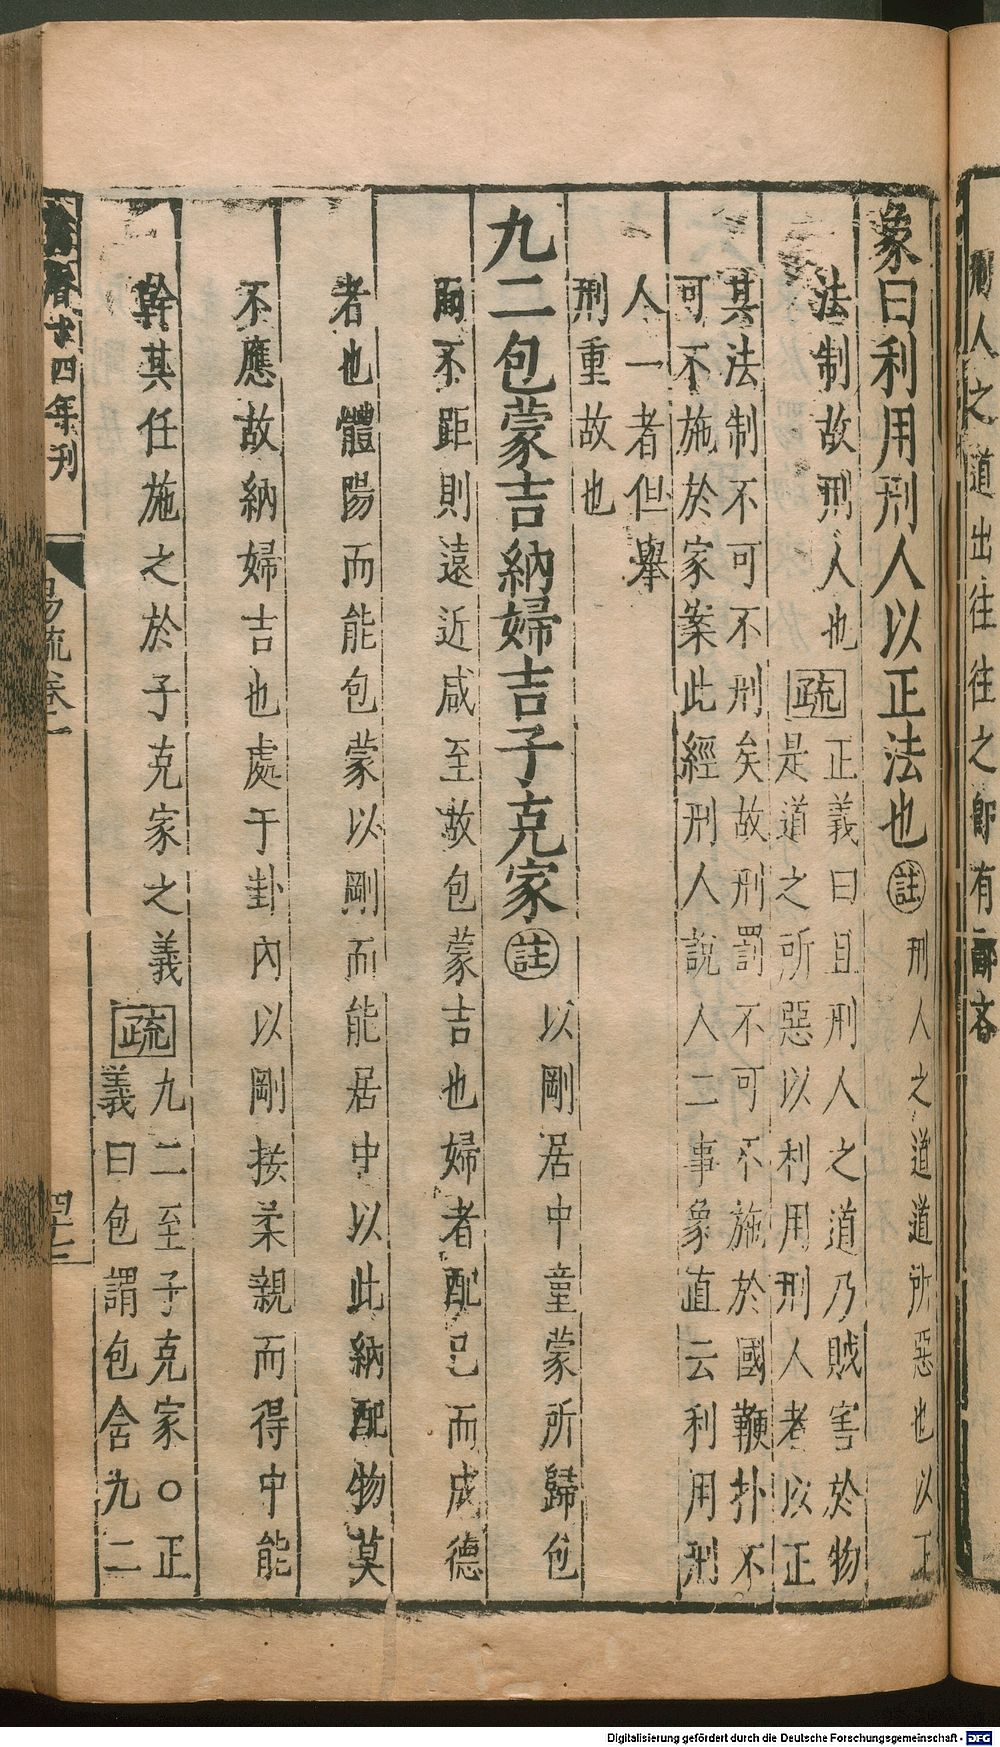 象曰利用刑人以正法也註刑人之道道所惡也以正
法制故刑人也疏正義曰且刑人之道乃賊害於物
是道之所惡以利用刑人者以正
其法制不可不刑矣故刑罰不可不施於國鞭扑不
可不施於家案此經刑人說人二事象直云利用刑
人一者但舉
刑重故也
九二包蒙吉納婦吉子克家註以剛居中童蒙所歸包
而不距則遠近咸至故包蒙吉也婦者配己而成德
者也體陽而能包蒙以剛而能居中以此納配物莫
不應故納婦吉也處于卦內以剛接柔親而得中能
幹其任施之於子克家之義疏九二至子克家○正
義曰包謂包含九二
年刊
易疏卷二
人之道出往往之即有
吝
Digitalisierung gefördert durch die Deutsche Forschungsgemeinschaft - DFG